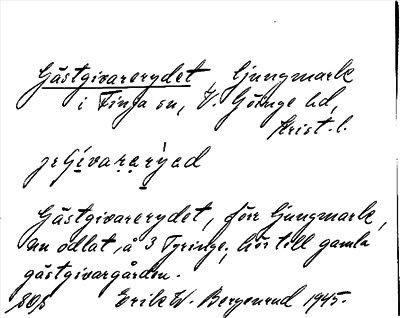 Gästgivarerydet, Ljungmark
i Finja sn, V. Göinge hd,
Krist. l.
Gästgivarerydet, förr ljungmark,
nu odlat, å 3 Tyringe, hör till gamla
gästgivargården.
Erik W. Bergenrud 1945.